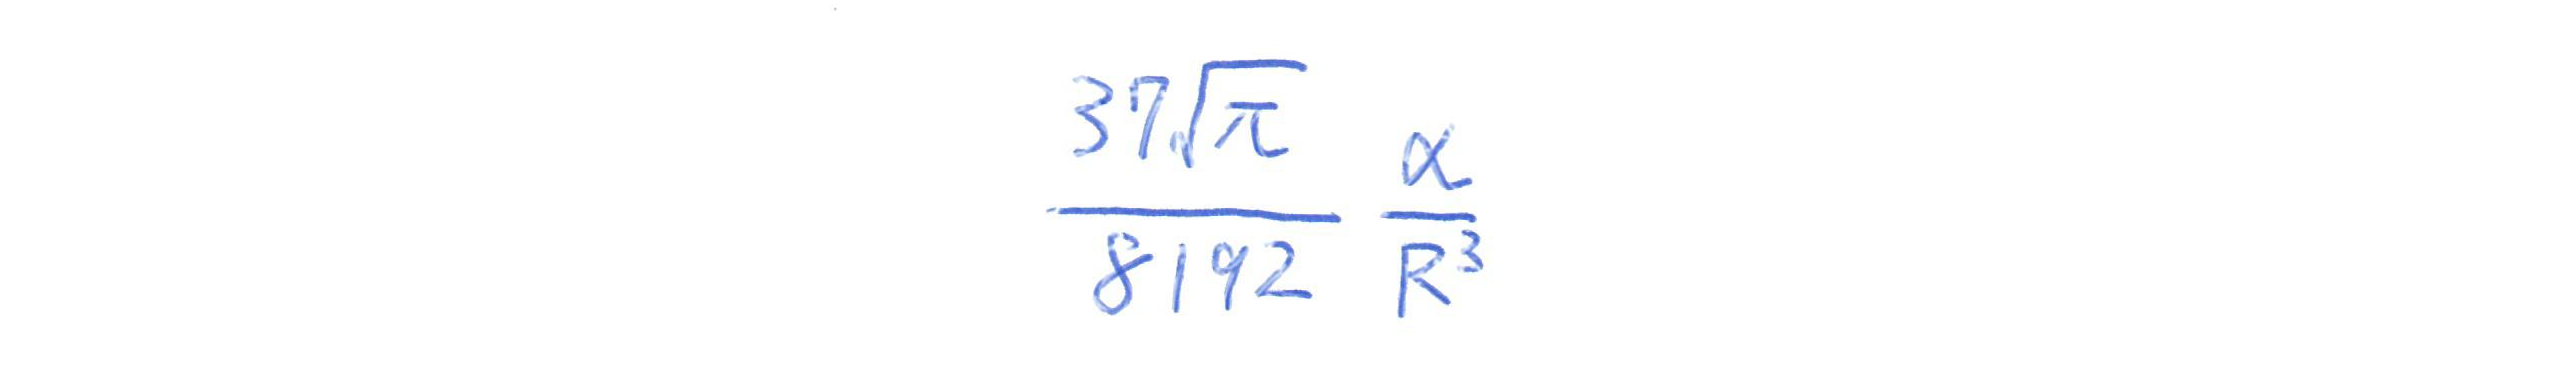 \frac{37\sqrt{\pi}}{8192} \frac{\alpha}{R^3}